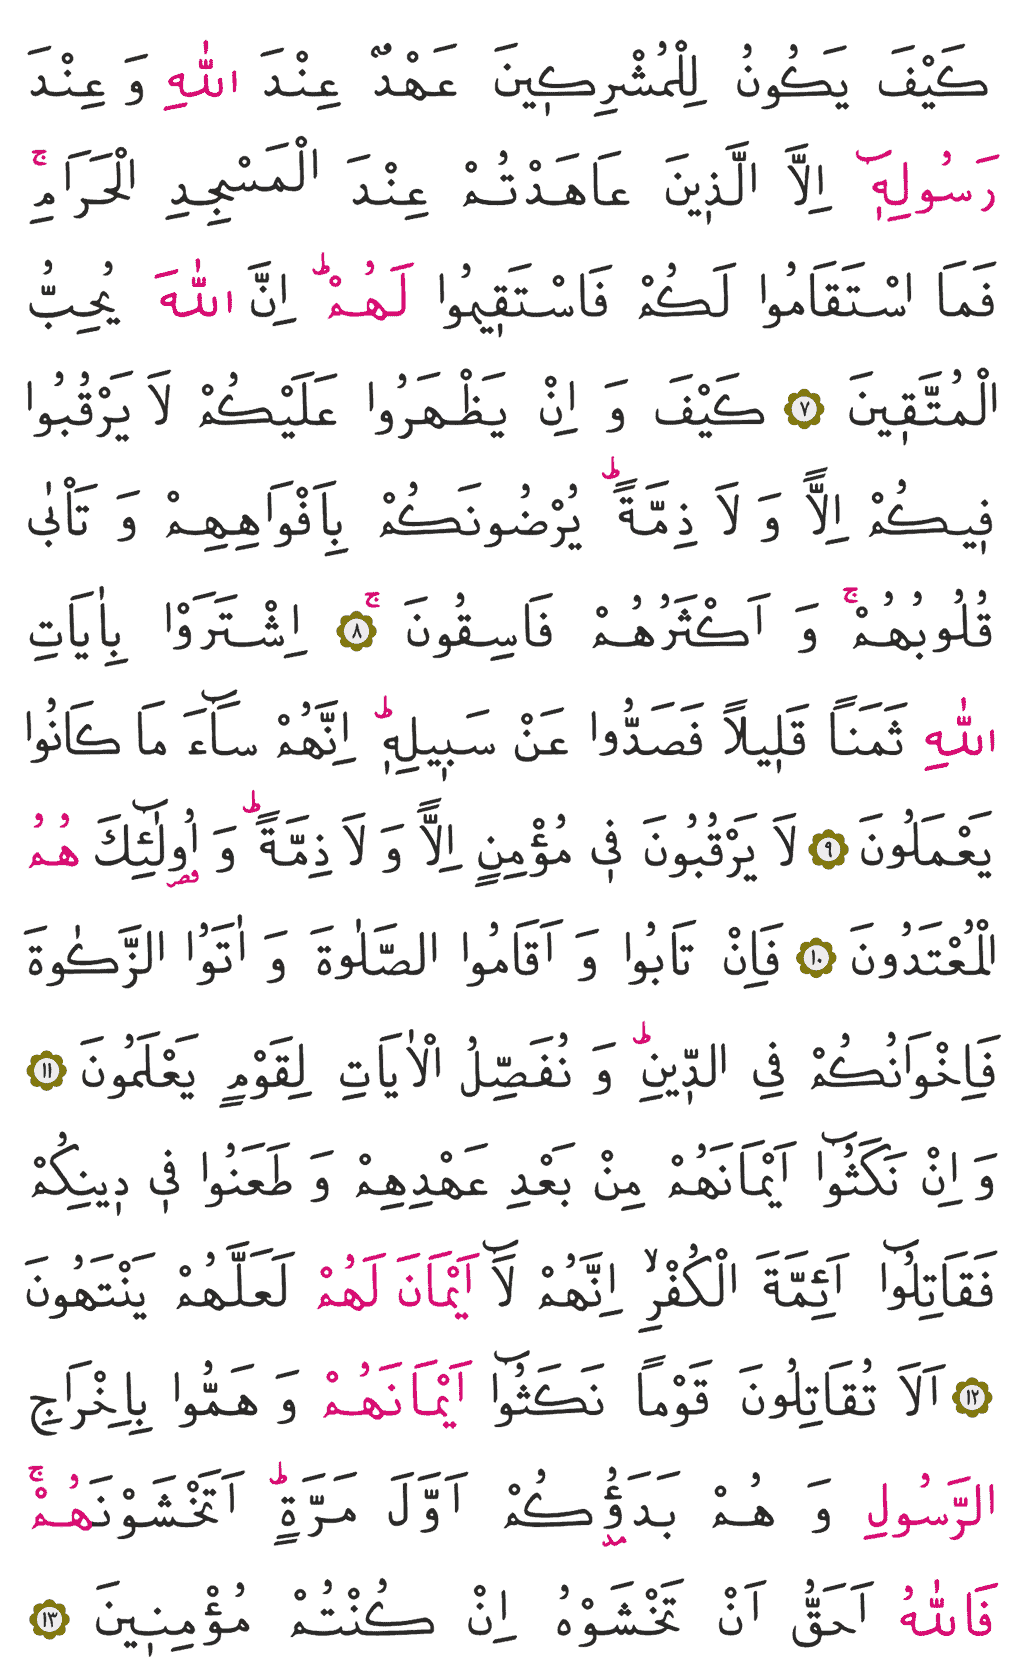 كَيْفَ يَكُونُ لِلْمُشْرِكٖينَ عَهْدٌ عِنْدَ اللّٰهِ وَ عِنْدَ
رَسُولِهٖٓ اِلَّا الَّذٖينَ عَاهَدْتُمْ عِنْدَ الْمَسْجِدِ الْحَرَامِۚ
فَمَا اسْتَقَامُوا لَكُمْ فَاسْتَقٖيمُوا لَهُمْؕ اِنَّ اللّٰهَ يُحِبُّ
الْمُتَّقٖينَ ﴿٧﴾ كَيْفَ وَ اِنْ يَظْهَرُوا عَلَيْكُمْ لَا يَرْقُبُوا
فٖيكُمْ اِلًّا وَ لَا ذِمَّةًؕ يُرْضُونَكُمْ بِاَفْوَاهِهِمْ وَ تَاْبٰى
قُلُوبُهُمْۚ وَ اَكْثَرُهُمْ فَاسِقُونَۚ ﴿٨﴾ اِشْتَرَوْا بِاٰيَاتِ
اللّٰهِ ثَمَنًا قَلٖيلًا فَصَدُّوا عَنْ سَبٖيلِهٖؕ اِنَّهُمْ سَٓاءَ مَا كَانُوا
يَعْمَلُونَ ﴿٩﴾ لَا يَرْقُبُونَ فٖى مُؤْمِنٍ اِلًّا وَ لَا ذِمَّةًؕ وَ اُولٰٓئِكَ هُمُ
الْمُعْتَدُونَ ﴿١٠﴾ فَاِنْ تَابُوا وَ اَقَامُوا الصَّلٰوةَ وَ اٰتَوُا الزَّكٰوةَ
فَاِخْوَانُكُمْ فِى الدّٖينِؕ وَ نُفَصِّلُ الْاٰيَاتِ لِقَوْمٍ يَعْلَمُونَ ﴿١١﴾
وَ اِنْ نَكَثُٓوا اَيْمَانَهُمْ مِنْ بَعْدِ عَهْدِهِمْ وَ طَعَنُوا فٖى دٖينِكُمْ
فَقَاتِلُٓوا اَئِمَّةَ الْكُفْرِۙ اِنَّهُمْ لَٓا اَيْمَانَ لَهُمْ لَعَلَّهُمْ يَنْتَهُونَ
﴿١٢﴾ اَلَا تُقَاتِلُونَ قَوْمًا نَكَثُٓوا اَيْمَانَهُمْ وَ هَمُّوا بِاِخْرَاجِ
الرَّسُولِ وَ هُمْ بَدَؤُكُمْ اَوَّلَ مَرَّةٍؕ اَتَخْشَوْنَهُمْۚ
فَاللّٰهُ اَحَقُّ اَنْ تَخْشَوْهُ اِنْ كُنْتُمْ مُؤْمِنٖينَ ﴿١٣﴾